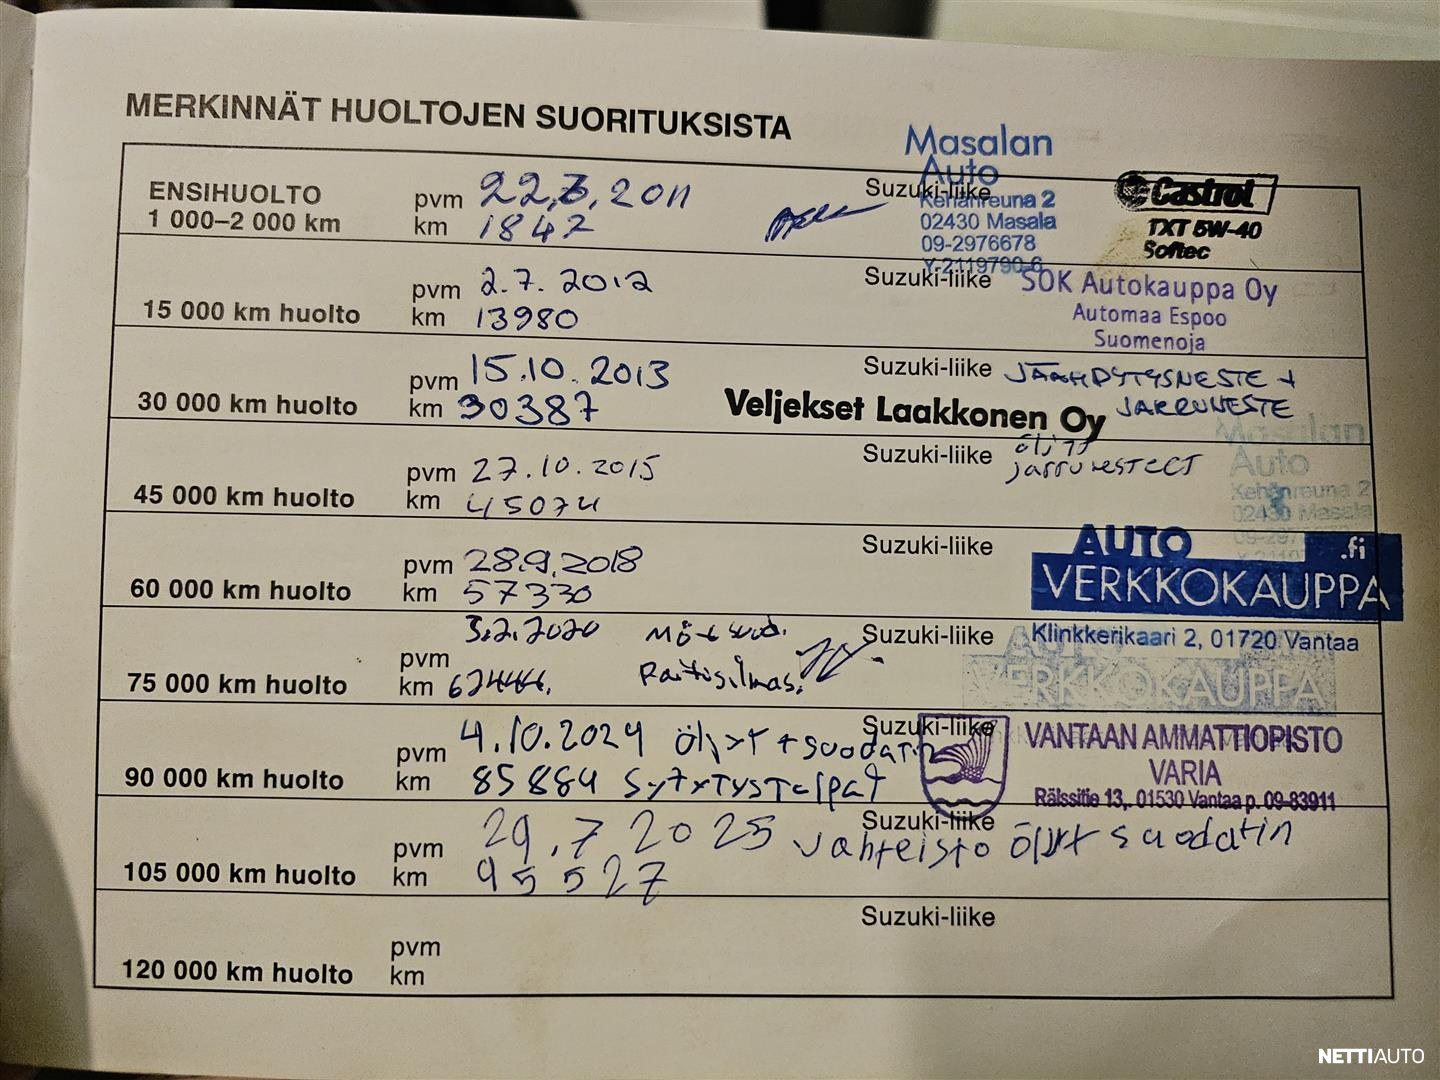 MERKINNÄT HUOLTOJEN SUORITUKSISTA
Masalan
Auto
Kehänreuna 2
02430 Masala
09-2976678
Y-2119790-6
Castrol
TXT 5W-40
Softec
ENSIHUOLTO
1 000–2 000 km
pvm 22.3.2011
km 1842
Suzuki-liike
15 000 km huolto
pvm 2.7.2012
km 13980
Suzuki-liike
SOK Autokauppa Oy
Automaa Espoo
Suomenoja
30 000 km huolto
pvm 15.10.2013
km 30387
Suzuki-liike JÄÄHDYTYSNESTE +
JARRUNESTE
Veljekset Laakkonen Oy
45 000 km huolto
pvm 27.10.2015
km 45074
Suzuki-liike öljyt
jarrunesteet
Masalan
Auto
Kehänreuna 2
02430 Masala
60 000 km huolto
pvm 28.9.2018
km 57330
Suzuki-liike
AUTO .fi
VERKKOKAUPPA
Klinkkerikaari 2, 01720 Vantaa
75 000 km huolto
pvm 3.2.2020
km
Raitisilmas.
Suzuki-liike
AUTO
VERKKOKAUPPA
90 000 km huolto
pvm 4.10.2024 öljyt + suodatin
km 85884 sytytystulpat
Suzuki-liike
VANTAAN AMMATTIOPISTO
VARIA
Rälssitie 13,. 01530 Vantaa p. 09-83911
105 000 km huolto
pvm 29.7 2025 vaihteisto öljyt suodatin
km 95527
Suzuki-liike
120 000 km huolto
pvm
km
Suzuki-liike
NETTIAUTO